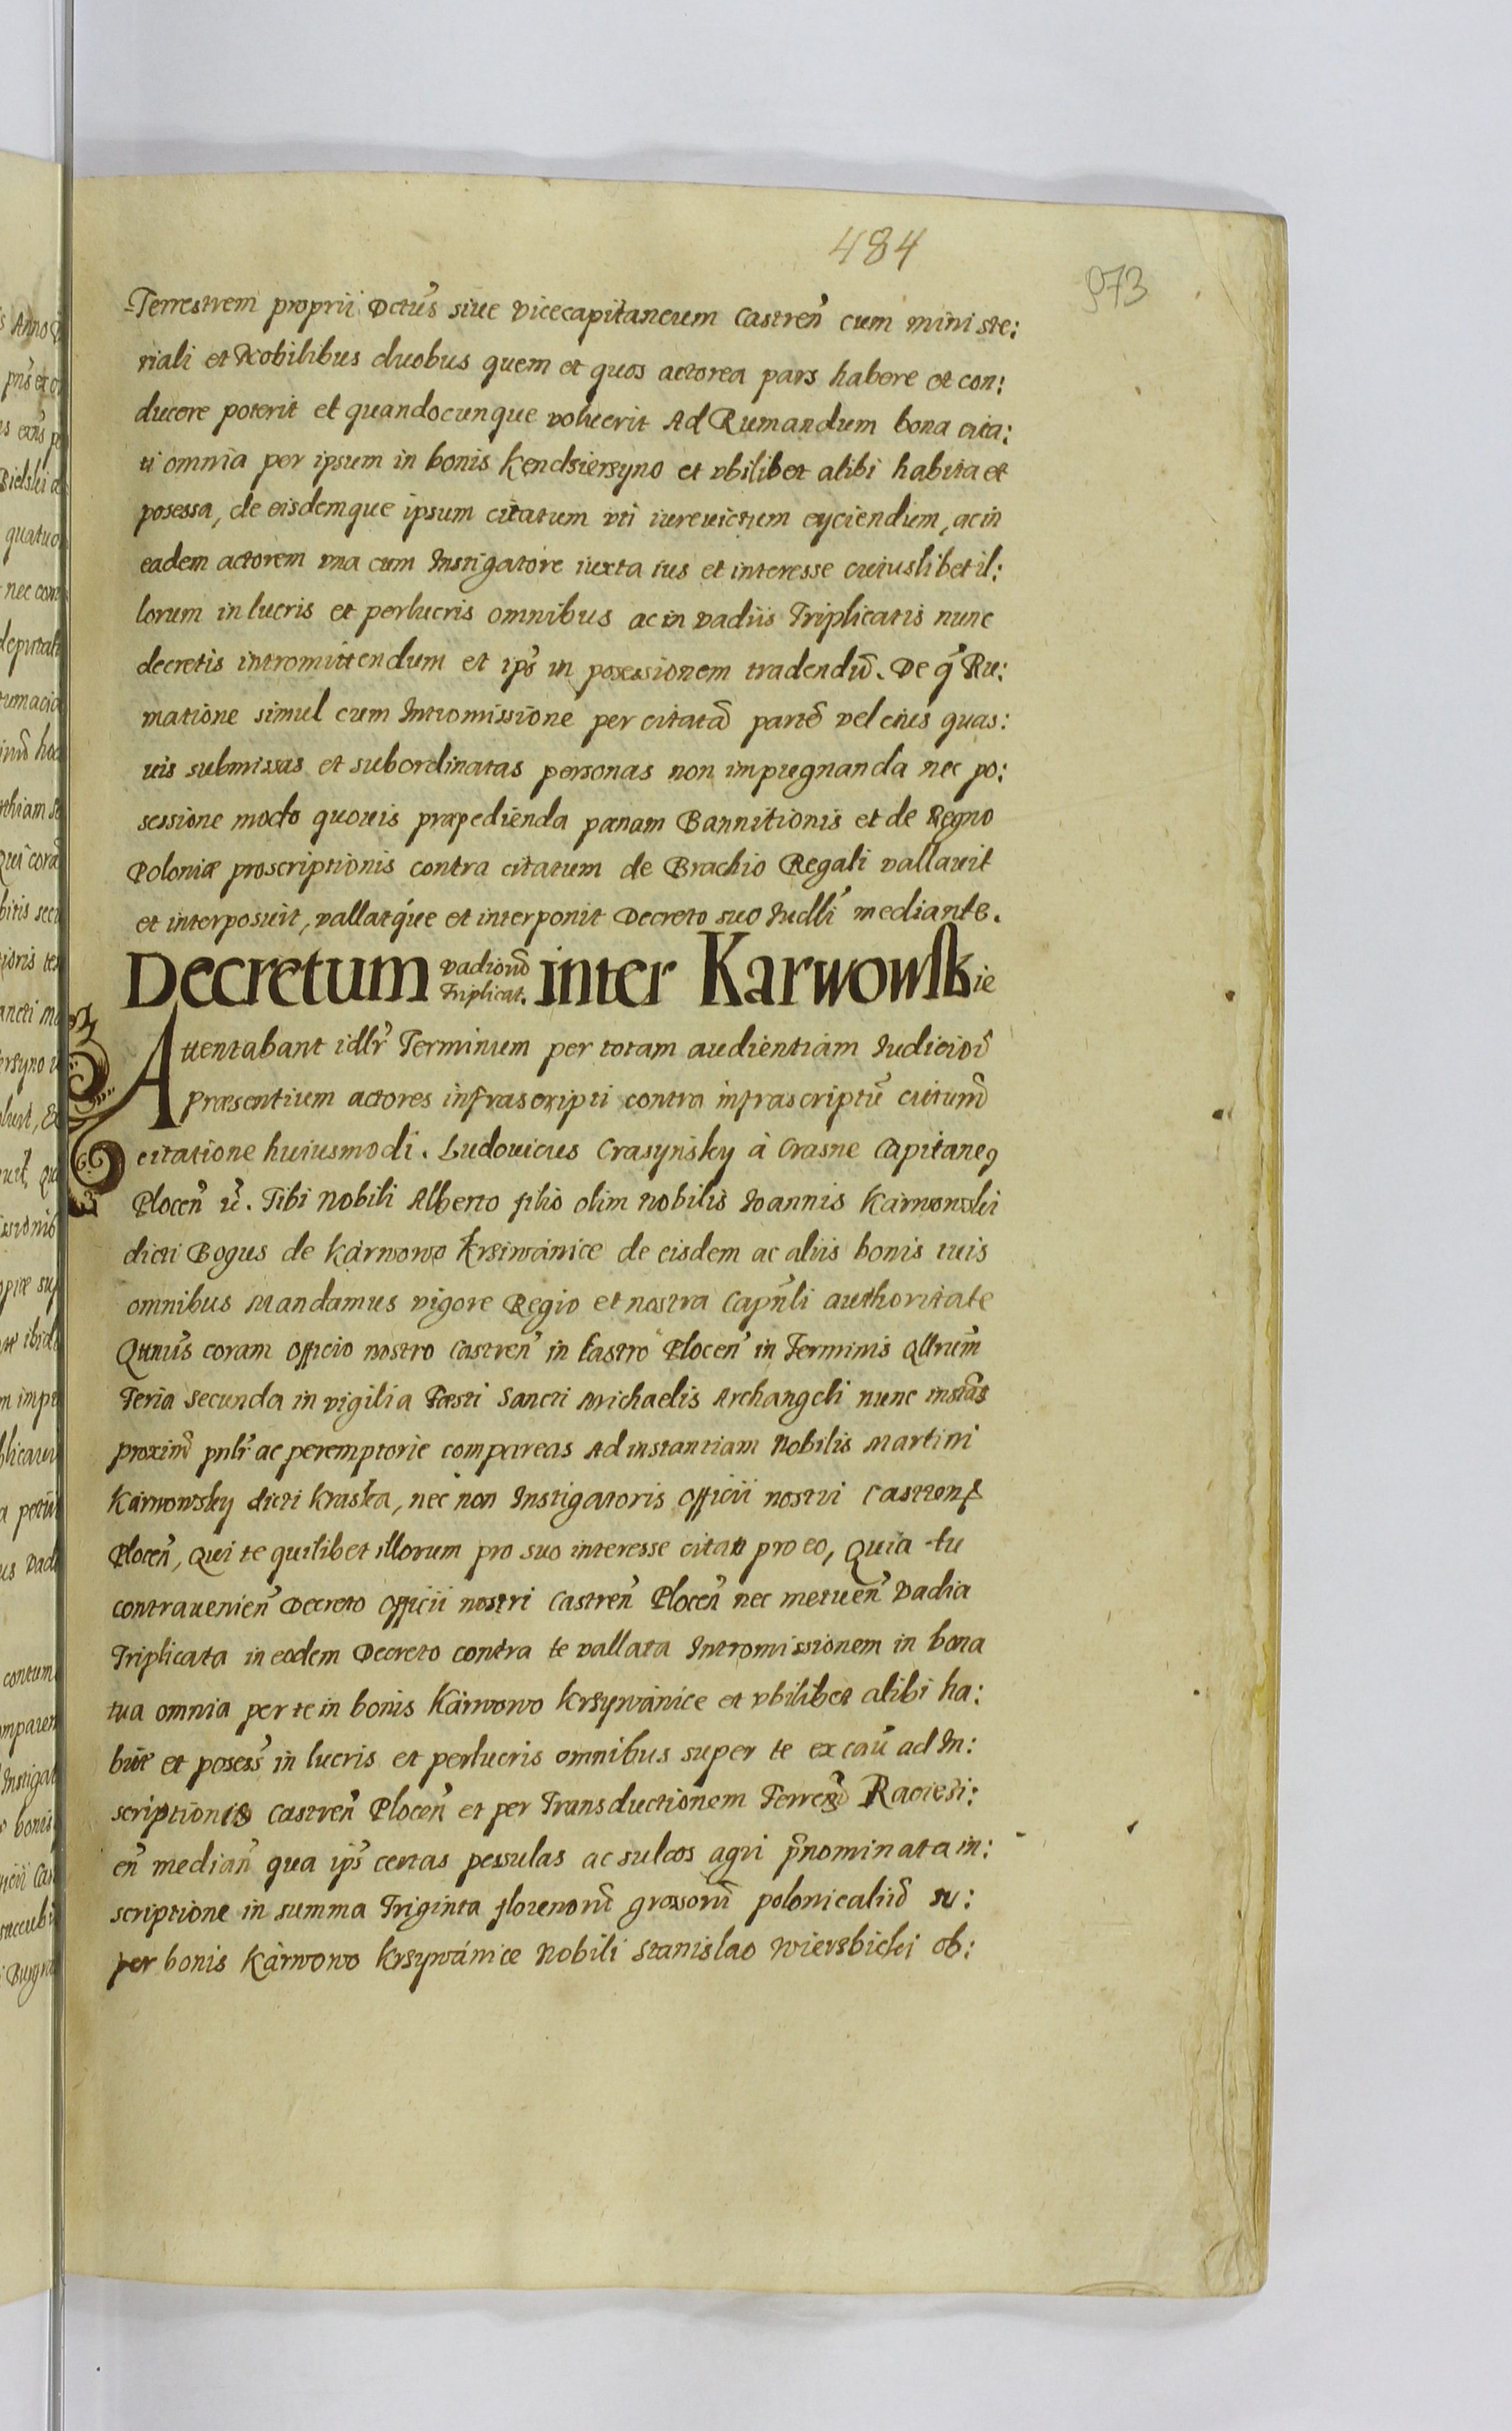 484
973
Terrestrem proprii Dctus̃ siue Vicecapitaneum Castren̄ cum ministe:
riali et Nobilibus duobus quem et quos actorea pars habere et con:
ducere poterit et quandocunque voluerit Ad Rumandum bona cita:
ti omnia per ipsum in bonis Kendsiersyno et vbilibet alibi habita et
posessa, de eisdemque ipsum citatum vti iureuictum eyciendum, ac in
eadem actorem vna cum Instigatore iuxta ius et interesse cuiuslibet il:
lorum in lucris et perlucris omnibus ac in vadiis Triplicatis nunc
decretis intromittendum et ips̃ in posessionem tradendũ. De q̃ Ru:
matione simul cum Intromissione per citatã partẽ vel eius quas:
uis submissas et subordinatas personas non impugnanda nec po:
sessione modo quouis præpedienda pænam Bannitionis et de Regno
Poloniæ proscriptionis contra citatum de Brachio Regali vallauit
et interposuit, vallatque et interponit Decreto suo Iudlĩ mediante.
Decretum vadiorũ Triplicat. inter Karwowskie
Attentabant idlr̃ Terminum per totam audientiam Iudiciorũ
Præsentium actores infrascripti contra infrascriptũ citatum̃
citatione huiusmodi. Ludouicus Crasynsky à Crasne Capitane9
Plocen̄ ꝛc̃. Tibi Nobili Alberto filio olim Nobilis Ioannis Karwowski
dicti Bogus de Karwowo Krsiwánice de eisdem ac aliis bonis tuis
omnibus Mandamus vigore Regio et nostra Capn̄li authoritate
Qttnus̃ coram Officio nostro Castren̄ in Castro Plocen̄ in Terminis Qllrum̃
Feria Secunda in vigilia Fæsti Sancti Michaelis Archangeli nunc instãs
proximẽ pnlr̃ ac peremptorie compareas Ad instantiam Nobilis Martini
Karwowsky dicti Kraska, nec non Instigatoris Officii nostri Castrens̃
Plocen̄, Qui te quilibet illorum pro suo interesse citat pro eo, Quia tu
contrauenien̄ Decreto Officii nostri Castren̄ Plocen̄ nec metuen̄ Vadia
Triplicata in eodem Decreto contra te vallata Intromissionem in bona
tua omnia per te in bonis Karwowo Krsywánice et vbilibet alibi ha:
bita et posess̃ in lucris et perlucris omnibus super te ex caũ ad In:
scriptionis Castren̄ Plocen̄ et per Transductionem Terren̄ Raciesi:
en̄ median̄ qua ips̃ certas pessulas ac sulcos agri p̃nominata in:
scriptione in summa Triginta florenorũ grossorũ polonicaliũ su:
per bonis Karwowo Krsywánice Nobili Stanislao Wiersbicki ob: